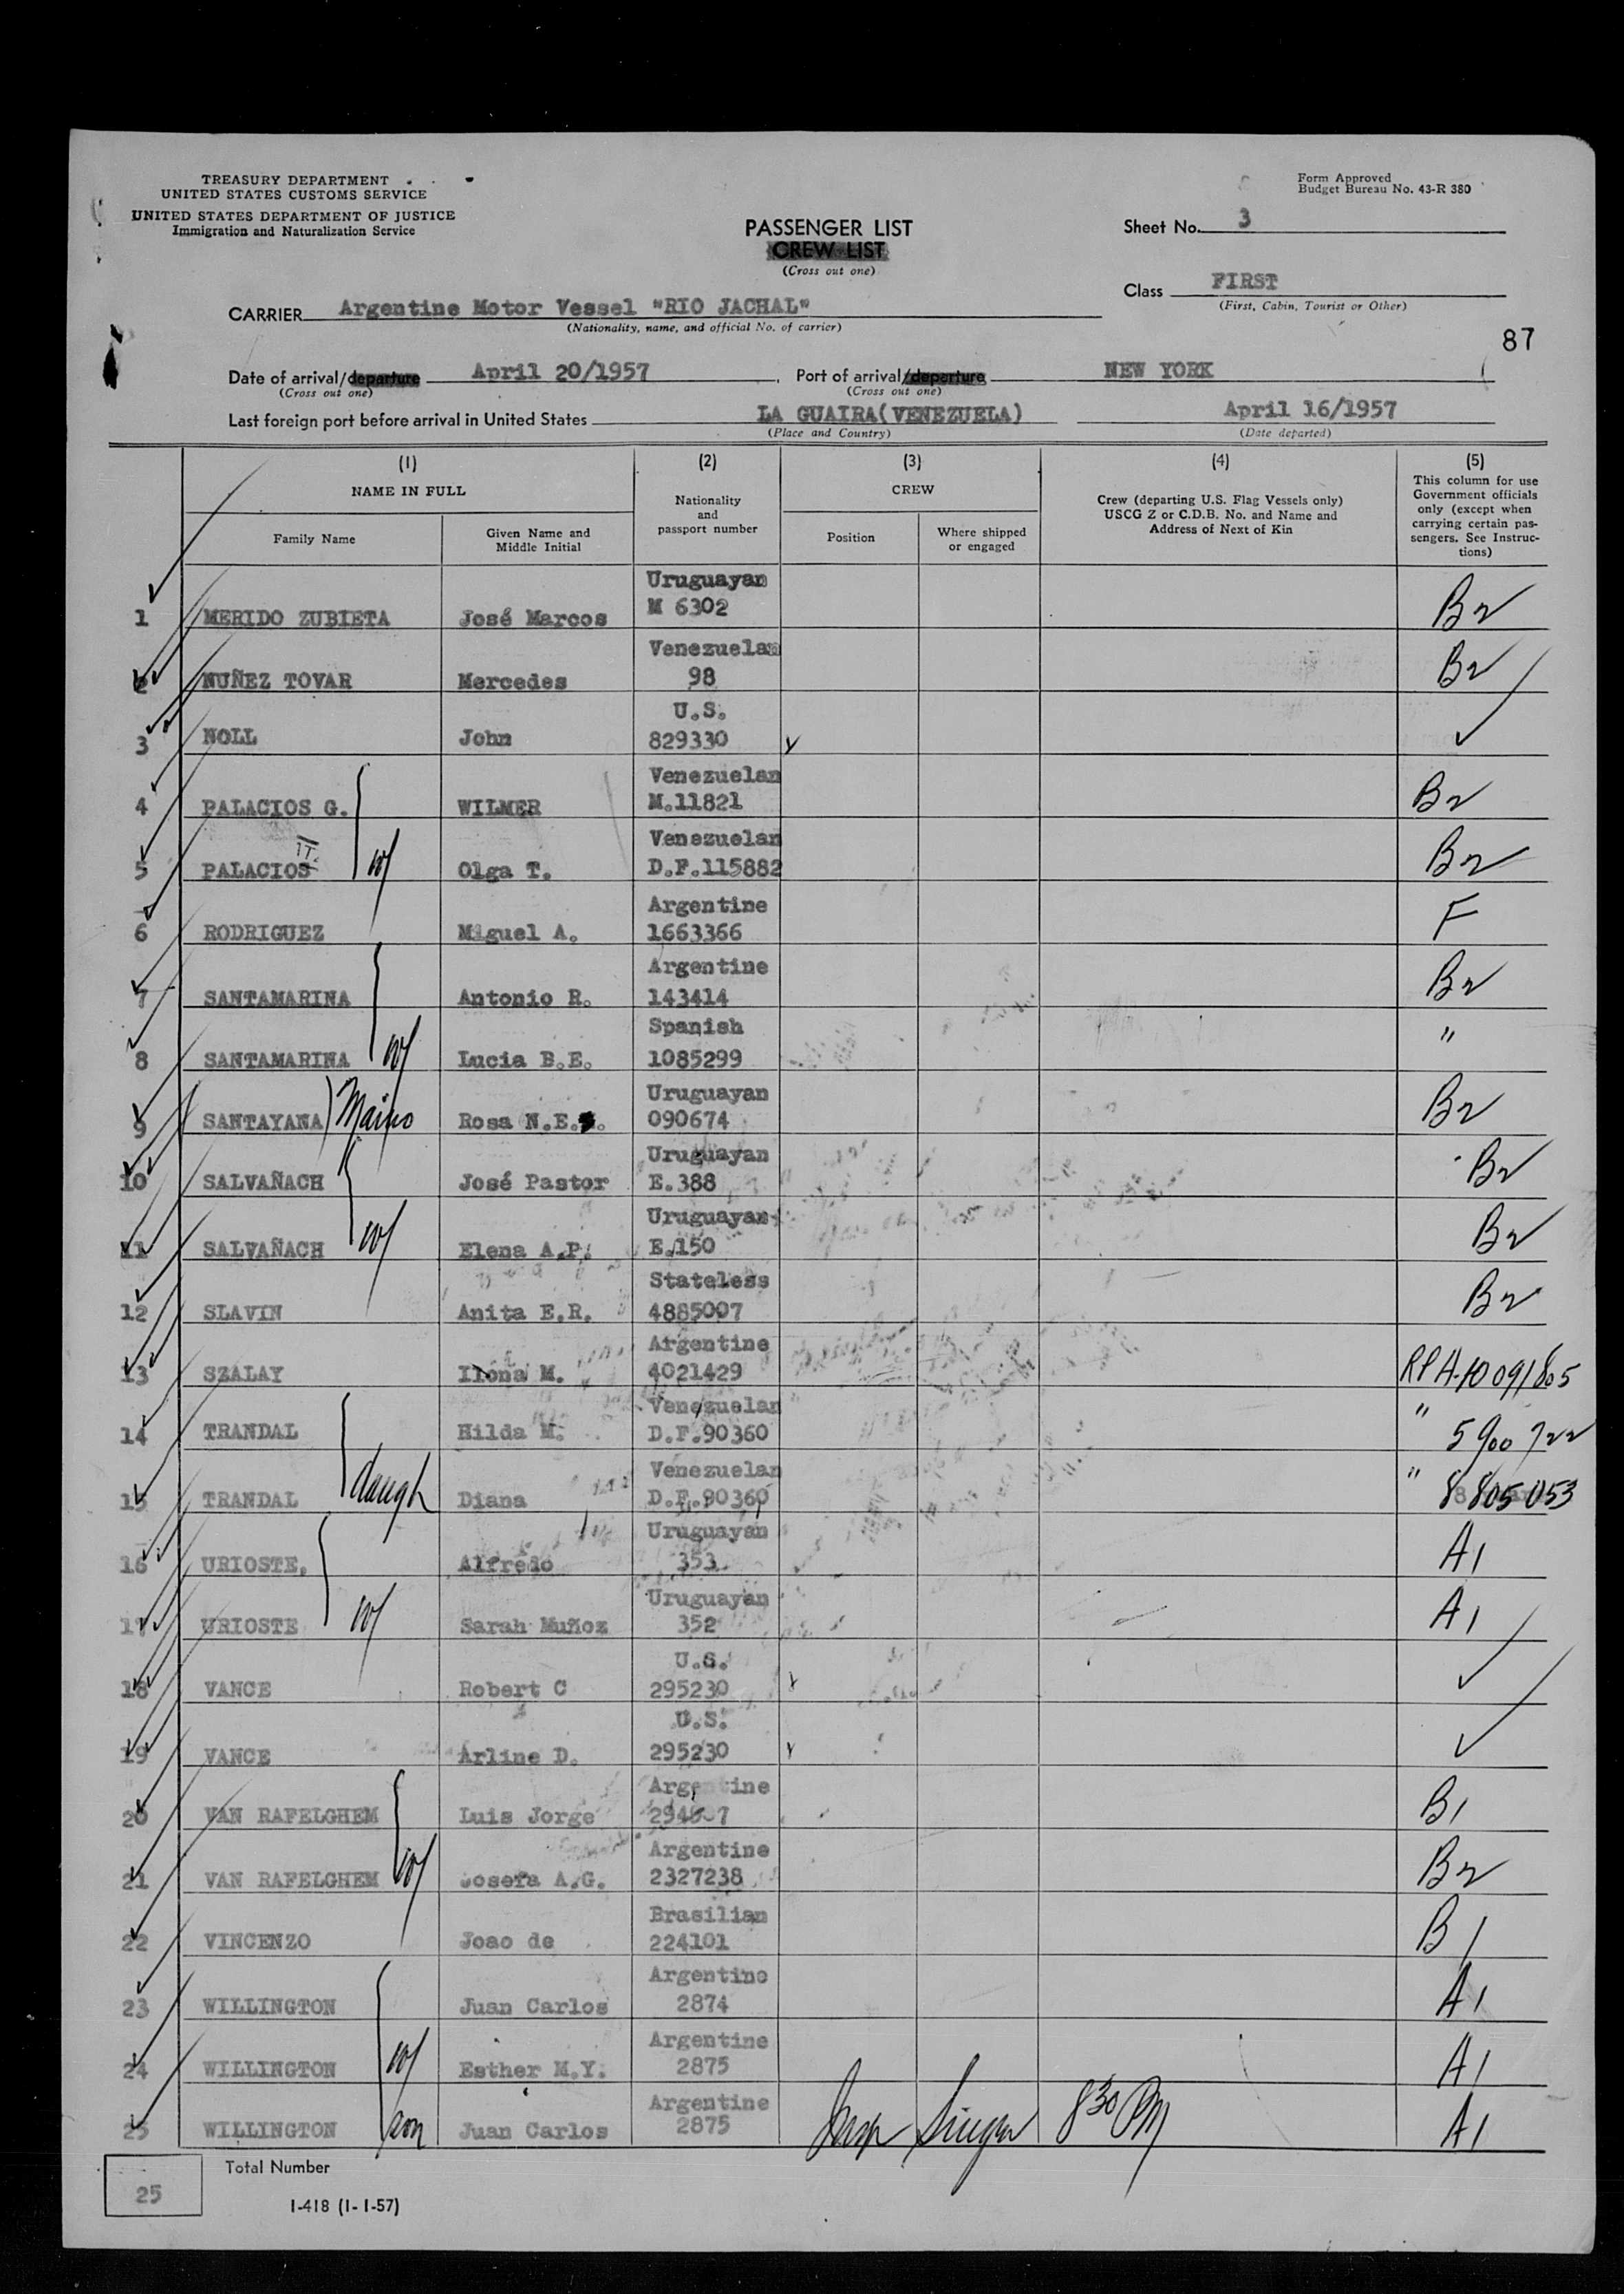 TREASURY DEPARTMENT
UNITED STATES CUSTOMS SERVICE
UNITED STATES DEPARTMENT OF JUSTICE
Immigration and Naturalization Service
Form Approved
Budget Bureau No. 43-R 380
PASSENGER LIST
CREW LIST
(Cross out one)
Sheet No. 3
Class FIRST
(First, Cabin, Tourist or Other)
CARRIER Argentine Motor Vessel "RIO JACHAL"
(Nationality, name, and official No. of carrier)
87
Date of arrival/departure April 20/1957. Port of arrival/departure NEW YORK
(Cross out one) (Cross out one)
Last foreign port before arrival in United States LA GUAIRA(VENEZUELA) April 16/1957
(Place and Country) (Date departed)
(1) (2) (3) (4) (5)
NAME IN FULL
Nationality
and
passport number
CREW
Crew (departing U.S. Flag Vessels only)
USCG Z or C.D.B. No. and Name and
Address of Next of Kin
This column for use
Government officials
only (except when
carrying certain pas-
sengers. See Instruc-
tions)
Family Name
Given Name and
Middle Initial
Position
Where shipped
or engaged
Uruguayan
1 MERIDO ZUBIETA José Marcos M 6302 B2
Venezuelan
2 NUÑEZ TOVAR Mercedes 98 B2
U.S.
3 NOLL John 829330
Venezuelan
4 PALACIOS G. WILMER M.11821 B2
Venezuelan
5 PALACIOS w/ Olga T. D.F.115882 B2
Argentine
6 RODRIGUEZ Miguel A. 1663366 F
Argentine
7 SANTAMARINA Antonio R. 143414 B2
Spanish
8 SANTAMARINA w/ Lucia B.E. 1085299 "
Uruguayan
9 SANTAYANA Maino Rosa N.E. 090674 B2
Uruguayan
10 SALVAÑACH José Pastor E.388 B2
Uruguayan
11 SALVAÑACH w/ Elena A.P. E.150 B2
Stateless
12 SLAVIN Anita E.R. 4885007 B2
Argentine
13 SZALAY Ilona M. 4021429 RP A-10 091805
Venezuelan
14 TRANDAL Hilda M. D.F.90360 " 5 900 722
Venezuelan
15 TRANDAL daugh Diana D.F.90360 " 8 805 053
Uruguayan
16 URIOSTE. Alfredo 353 A1
Uruguayan
17 URIOSTE w/ Sarah Muñoz 352 A1
U.S.
18 VANCE Robert C 295230
U.S.
19 VANCE Arline D. 295230
Argentine
20 VAN RAFELGHEM Luis Jorge B1
Argentine
21 VAN RAFELGHEM w/ Josefa A.G. 2327238 B2
Brasilian
22 VINCENZO Joao de 224101 B1
Argentine
23 WILLINGTON Juan Carlos 2874 A1
Argentine
24 WILLINGTON w/ Esther M.Y. 2875 A1
Argentine
25 WILLINGTON son Juan Carlos 2875 A1
Insp Singer 8 30 PM
25
Total Number
I-418 (1-1-57)